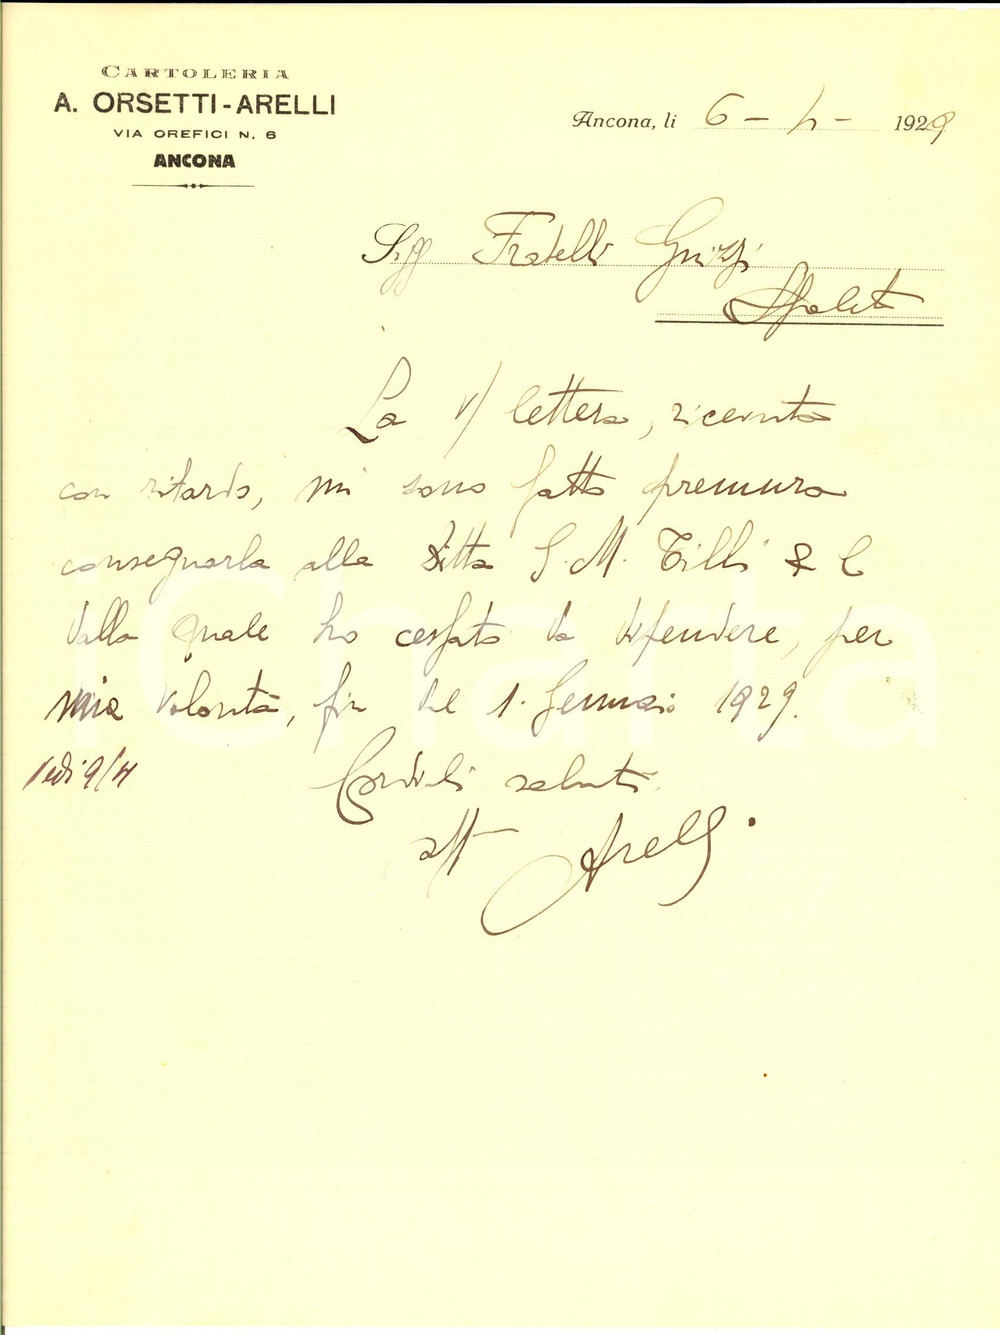 CARTOLERIA
A. ORSETTI-ARELLI
VIA OREFICI N. 6
ANCONA
Ancona, lì 6 - 4 - 1929
Sigg Fratelli
Spoleto
La v/ lettera, ricevuta
con ritardo, mi sono fatto premura
consegnarla alla Ditta G. M. Tilli & C
dalla quale ho cessato da dipendere, per
mia volontà, fin dal 1. Gennaio 1929.
Vedi 9/4
Cordiali saluti
Arelli
iCharta